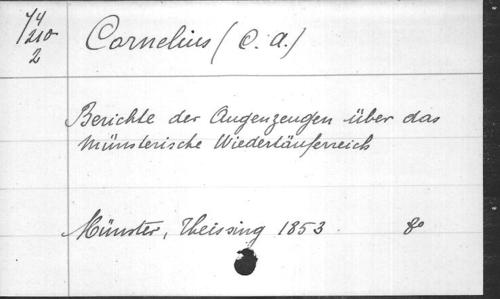 74
210
2
Cornelius (C. A.)
Berichte der Augenzeugen über das
Münsterische Wiedertäuferreich
Münster, Theissing 1853. 8o